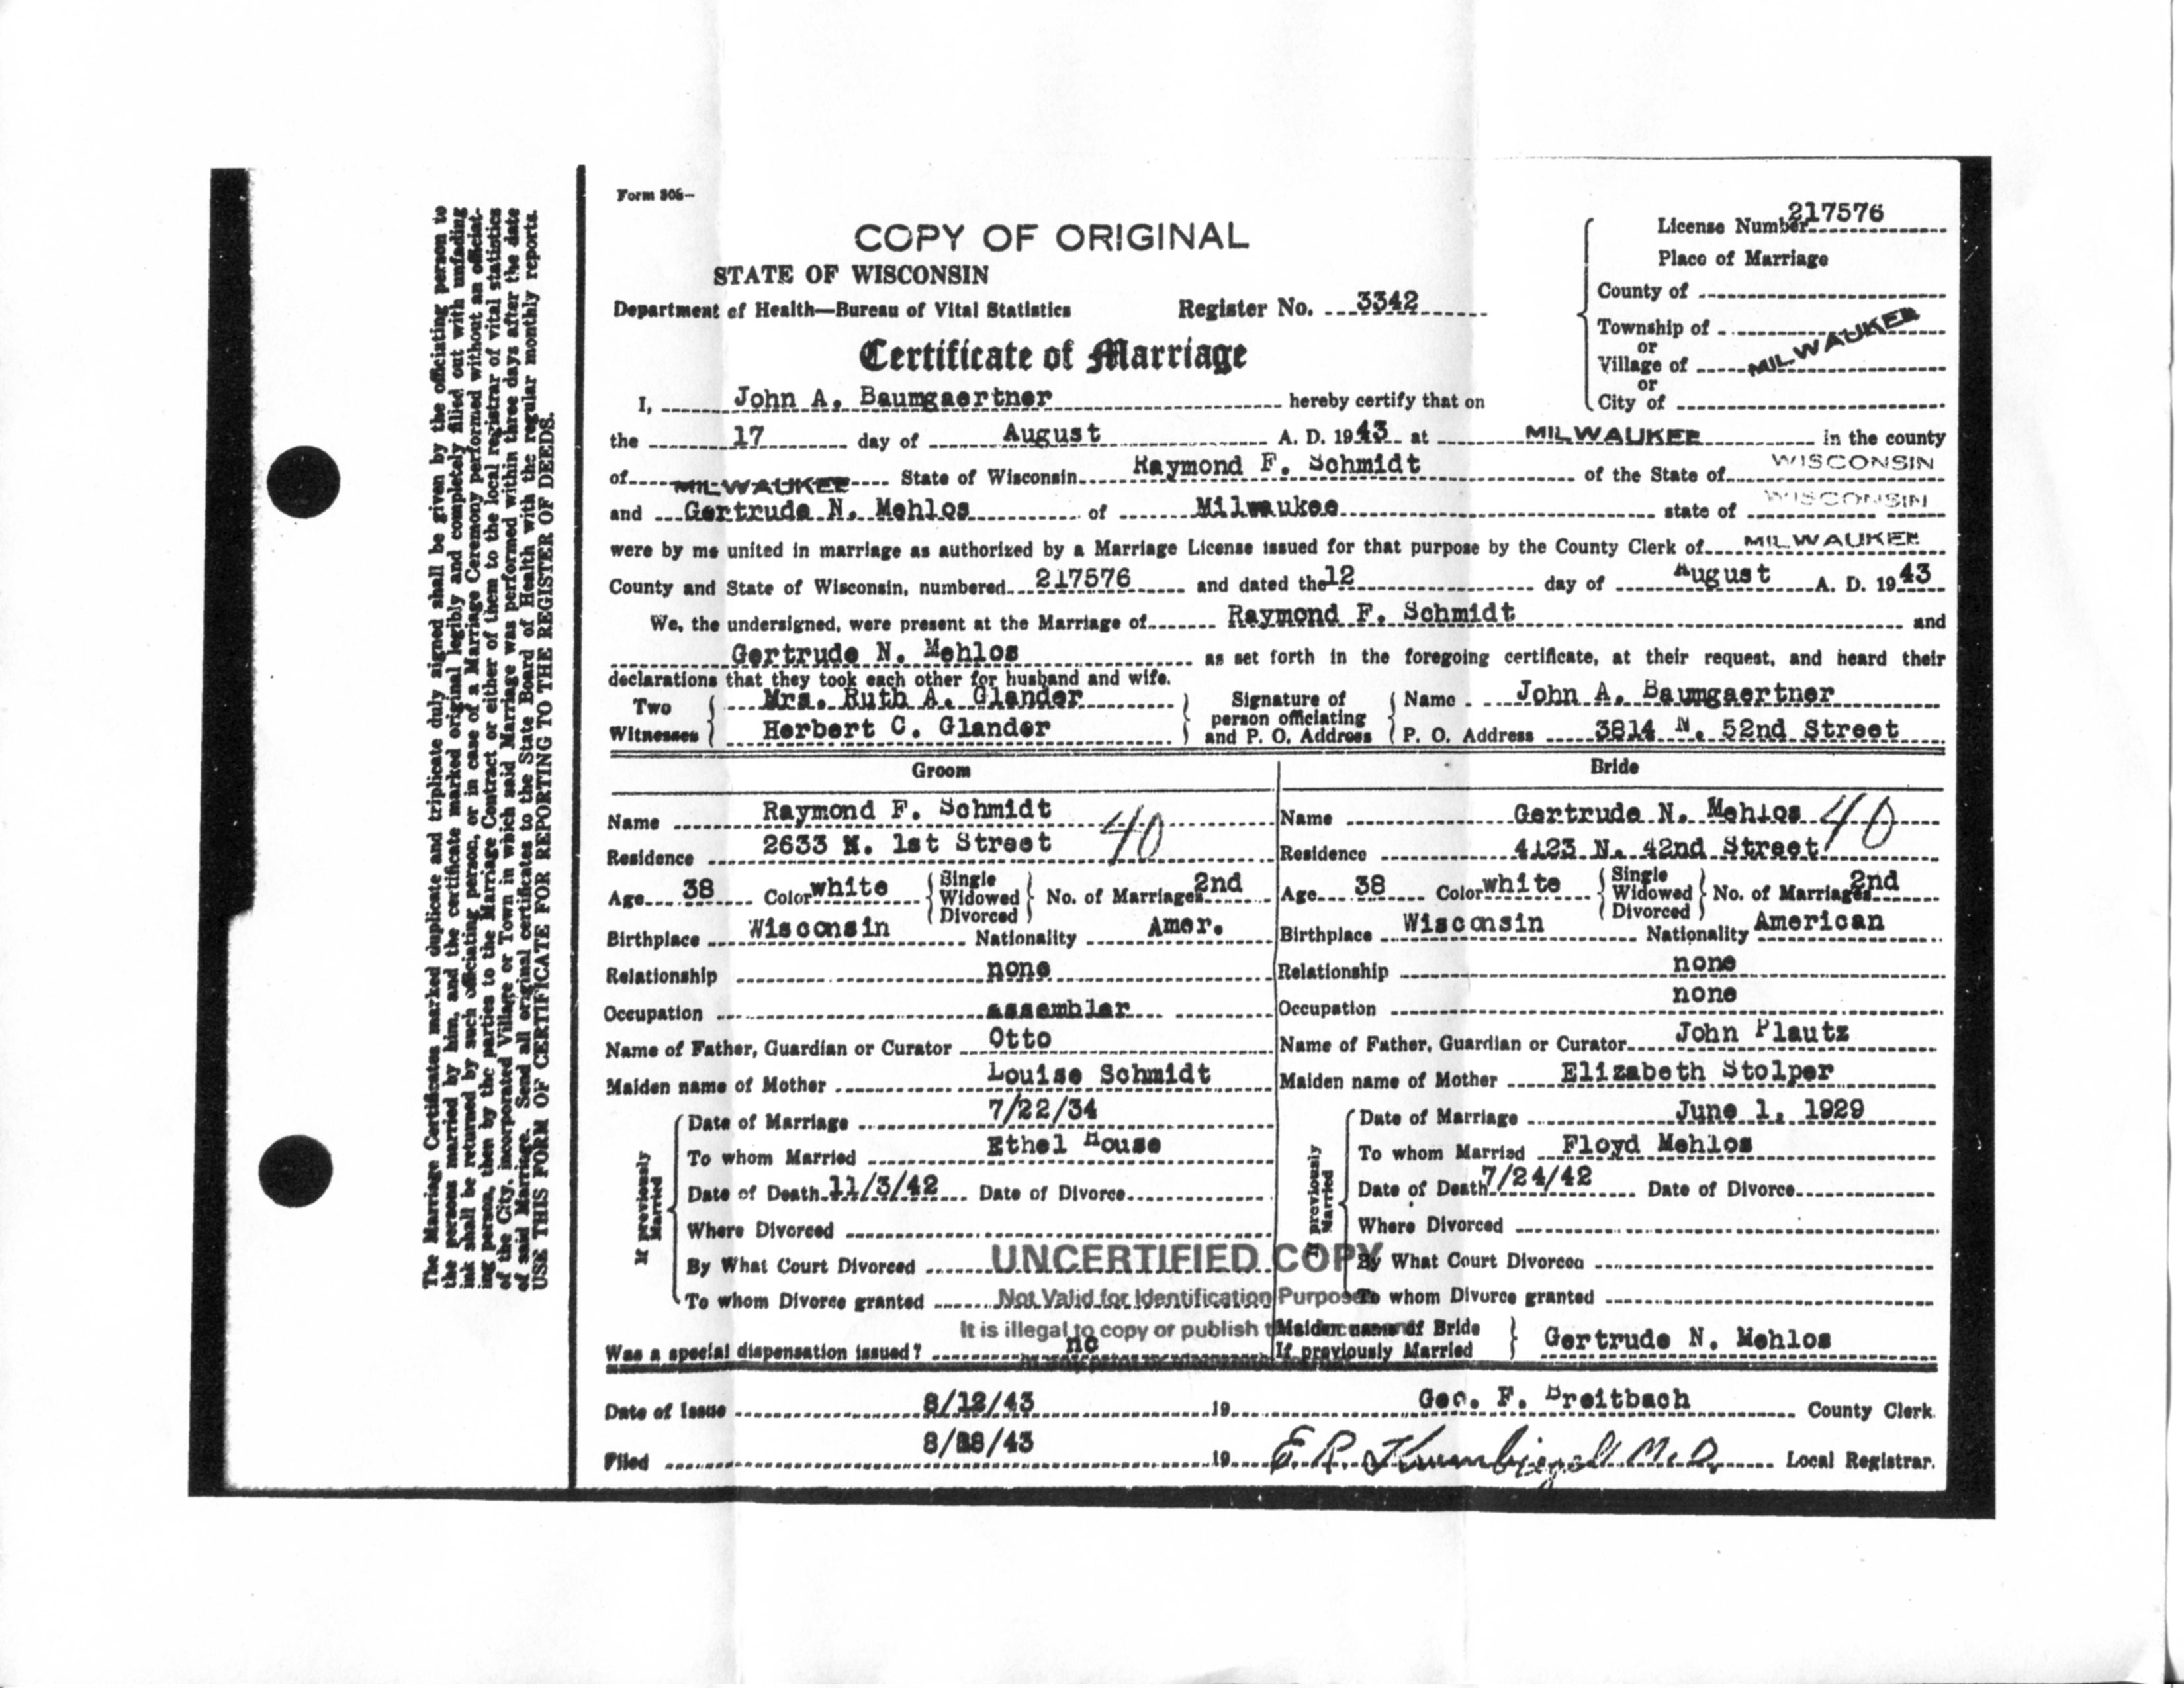 Form 306—
COPY OF ORIGINAL
STATE OF WISCONSIN
Department of Health—Bureau of Vital Statistics
Register No. 3342
Certificate of Marriage
License Number 217576
Place of Marriage
County of
Township of
or
Village of MILWAUKEE
or
City of
I, John A. Baumgaertner hereby certify that on
the 17 day of August A. D. 1943 at MILWAUKEE in the county
of MILWAUKEE State of Wisconsin Raymond F. Schmidt of the State of WISCONSIN
and Gertrude N. Mehlos of Milwaukee state of WISCONSIN
were by me united in marriage as authorized by a Marriage License issued for that purpose by the County Clerk of MILWAUKEE
County and State of Wisconsin, numbered 217576 and dated the 12 day of August A. D. 1943
We, the undersigned, were present at the Marriage of Raymond F. Schmidt and
Gertrude N. Mehlos as set forth in the foregoing certificate, at their request, and heard their
declarations that they took each other for husband and wife.
Two Witnesses
Mrs. Ruth A. Glander
Herbert C. Glander
Signature of person officiating and P. O. Address
Name John A. Baumgaertner
P. O. Address 3814 N. 52nd Street
Groom
Name Raymond F. Schmidt 40
Residence 2633 N. 1st Street
Age 38 Color white Single Widowed Divorced No. of Marriages 2nd
Birthplace Wisconsin Nationality Amer.
Relationship none
Occupation assembler
Name of Father, Guardian or Curator Otto
Maiden name of Mother Louise Schmidt
If previously Married
Date of Marriage 7/22/34
To whom Married Ethel House
Date of Death 11/3/42 Date of Divorce
Where Divorced
By What Court Divorced
To whom Divorce granted
Was a special dispensation issued? no
Bride
Name Gertrude N. Mehlos 40
Residence 4123 N. 42nd Street
Age 38 Color white Single Widowed Divorced No. of Marriages 2nd
Birthplace Wisconsin Nationality American
Relationship none
Occupation none
Name of Father, Guardian or Curator John Plautz
Maiden name of Mother Elizabeth Stolper
If previously Married
Date of Marriage June 1, 1929
To whom Married Floyd Mehlos
Date of Death 7/24/42 Date of Divorce
Where Divorced
By What Court Divorced
To whom Divorce granted
Maiden name of Bride If previously Married Gertrude N. Mehlos
UNCERTIFIED COPY
Not Valid for Identification Purposes
It is illegal to copy or publish
Date of Issue 8/12/43 19 Geo. F. Breitbach County Clerk.
Filed 8/18/43 19 E. R. Krumbiegel M.D. Local Registrar.
The Marriage Certificates marked duplicate and triplicate duly signed shall be given by the officiating person to
the persons married by him, and the certificate marked original legibly and completely filled out with unfading
ink shall be returned by such officiating person, or in case of a Marriage Ceremony performed without an officiat-
ing person, then by the parties to the Marriage Contract or either of them to the local registrar of vital statistics
of the City, incorporated Village or Town in which said Marriage was performed within three days after the date
of said Marriage. Send all original certificates to the State Board of Health with the regular monthly reports.
USE THIS FORM OF CERTIFICATE FOR REPORTING TO THE REGISTER OF DEEDS.